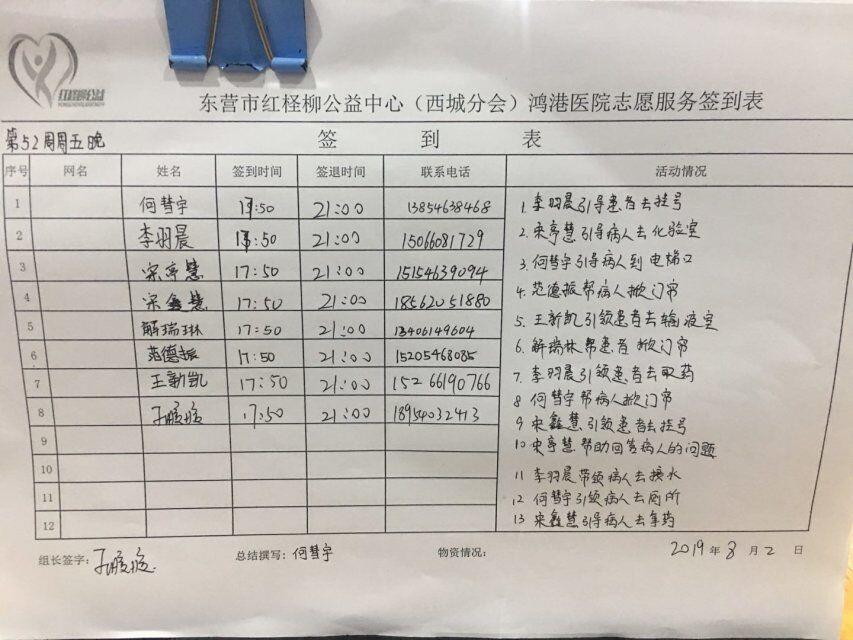 红柽柳公益
东营市红柽柳公益中心（西城分会）鸿港医院志愿服务签到表
第52周周五晚 签到表
序号 网名 姓名 签到时间 签退时间 联系电话 活动情况
1 何彗宇 17:50 21:00 13854638468
2 李羽晨 17:50 21:00 15066081729
3 宋亭慧 17:50 21:00 15154639094
4 宋鑫慧 17:50 21:00 18562051880
5 解瑞琳 17:50 21:00 13406149604
6 范德振 17:50 21:00 15205468085
7 王新凯 17:50 21:00 15266190766
8 17:50 21:00 18954032413
9
10
11
12
1. 李羽晨引导患者去挂号
2. 宋亭慧引导病人去化验室
3. 何彗宇引导病人到电梯口
4. 范德振帮病人掀门帘
5. 王新凯引领患者去输液室
6. 解瑞林帮患者掀门帘
7. 李羽晨引领患者去取药
8 何彗宇帮病人掀门帘
9 宋鑫慧引领患者去挂号
10 宋亭慧帮助回答病人的问题
11 李羽晨带领病人去接水
12 何彗宇引领病人去厕所
13 宋鑫慧引导病人去拿药
组长签字： 总结撰写：何彗宇 物资情况： 2019年8月2日